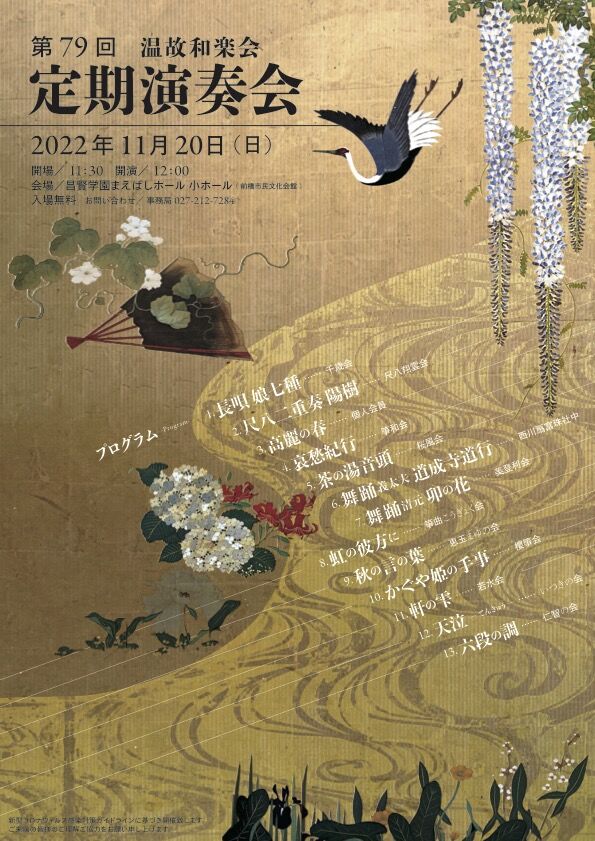 第79回 温故和楽会
定期演奏会
2022年11月20日(日)
開場／11:30 開演／12:00
会場／昌賢学園まえばしホール 小ホール(前橋市民文化会館)
入場無料 お問い合わせ／事務局 027-212-728
プログラム -Program-
1. 長唄 娘七種 …… 千歳会
2. 尺八二重奏 陽樹 …… 尺八翔雲会
3. 高麗の春 …… 個人会員
4. 哀愁紀行 …… 箏和会
5. 茶の湯音頭 …… 桜風会
6. 舞踊 義太夫 道成寺道行 …… 西川扇富珠社中
7. 舞踊 清元 卯の花 …… 美登利会
8. 虹の彼方に …… 箏曲こうぎょく会
9. 秋の言の葉 …… 黒玉まゆの会
10. かぐや姫の手事 …… 櫻箏会
11. 軒の雫 …… 若水会
12. 天泣 てんきゅう …… いつきの会
13. 六段の調 …… 仁智の会
新型コロナウィルス感染対策ガイドラインに基づき開催致します。
ご来場の皆様のご理解ご協力をお願い申し上げます。